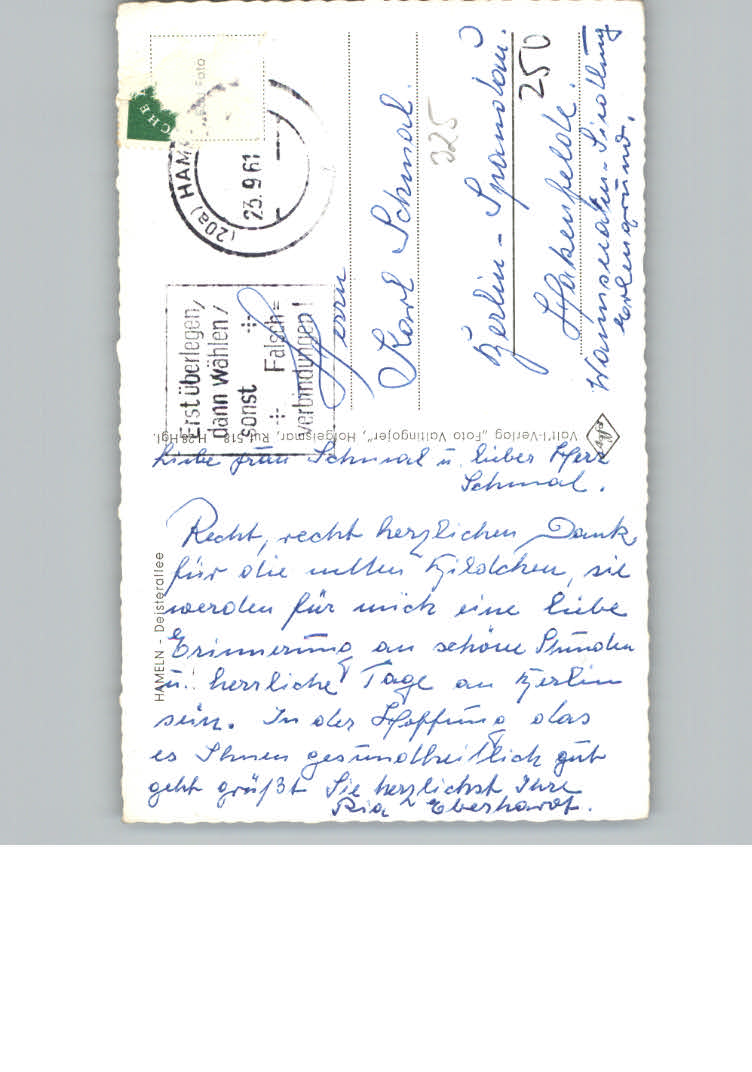 Liebe Frau Schmal u. lieber Herr
Schmal.
Recht, recht herzlichen Dank
für die netten Bildchen, sie
werden für mich eine liebe
Erinnerung an schöne Stunden
u. herrliche Tage an Berlin
sein. In der Hoffung das
es Ihnen gesundheitlich gut
geht grüßt Sie herzlichst Ihre
Ria Eberhardt.
HAMELN - Deisterallee
Herrn
Karl Schmal.
Berlin - Spandau.
Hakenfelde.
Siedlung
225
250
(20a) HAM
23.9.61
Erst überlegen,
dann wählen/
sonst
Falsch=
verbindungen!
Foto
CHE
Vait'l-Verlag „Foto Vaitlngojer“, Hofgeismar, Ruf 518
H 28 Hgl.
Agfa